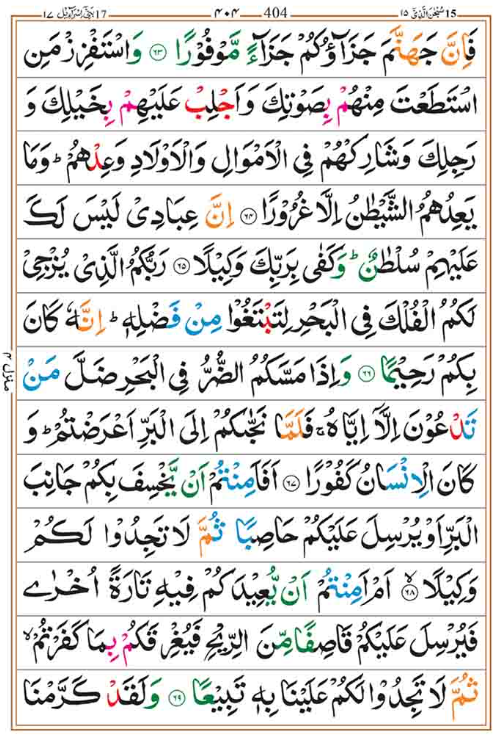 15 سُبْحٰنَ الَّذِيْٓ ١٥
404 ۴۰۴
17 بَنِيْٓ اِسْرَآءِيْل ١٧
فَاِنَّ جَهَنَّمَ جَزَآؤُكُمْ جَزَآءً مَّوْفُوْرًا ۝۶۳ وَاسْتَفْزِزْ مَنِ
اسْتَطَعْتَ مِنْهُمْ بِصَوْتِكَ وَاَجْلِبْ عَلَيْهِمْ بِخَيْلِكَ وَ
رَجِلِكَ وَشَارِكْهُمْ فِى الْاَمْوَالِ وَالْاَوْلَادِ وَعِدْهُمْ ؕ وَمَا
يَعِدُهُمُ الشَّيْطٰنُ اِلَّا غُرُوْرًا ۝۶۴ اِنَّ عِبَادِىْ لَيْسَ لَكَ
عَلَيْهِمْ سُلْطٰنٌ ؕ وَكَفٰى بِرَبِّكَ وَكِيْلًا ۝۶۵ رَبُّكُمُ الَّذِىْ يُزْجِىْ
لَكُمُ الْفُلْكَ فِى الْبَحْرِ لِتَبْتَغُوْا مِنْ فَضْلِهٖ ؕ اِنَّهٗ كَانَ
بِكُمْ رَحِيْمًا ۝۶۶ وَاِذَا مَسَّكُمُ الضُّرُّ فِى الْبَحْرِ ضَلَّ مَنْ
تَدْعُوْنَ اِلَّاۤ اِيَّاهُ ۚ فَلَمَّا نَجّٰٮكُمْ اِلَى الْبَرِّ اَعْرَضْتُمْ ؕ وَ
كَانَ الْاِنْسَانُ كَفُوْرًا ۝۶۷ اَفَاَمِنْتُمْ اَنْ يَّخْسِفَ بِكُمْ جَانِبَ
الْبَرِّ اَوْ يُرْسِلَ عَلَيْكُمْ حَاصِبًا ثُمَّ لَا تَجِدُوْا لَكُمْ
وَكِيْلًا ۙ‏۝۶۸ اَمْ اَمِنْتُمْ اَنْ يُّعِيْدَكُمْ فِيْهِ تَارَةً اُخْرٰى
فَيُرْسِلَ عَلَيْكُمْ قَاصِفًا مِّنَ الرِّيْحِ فَيُغْرِقَكُمْ بِمَا كَفَرْتُمْ ۙ
ثُمَّ لَا تَجِدُوْا لَكُمْ عَلَيْنَا بِهٖ تَبِيْعًا ۝۶۹ وَلَقَدْ كَرَّمْنَا
منزل ۴